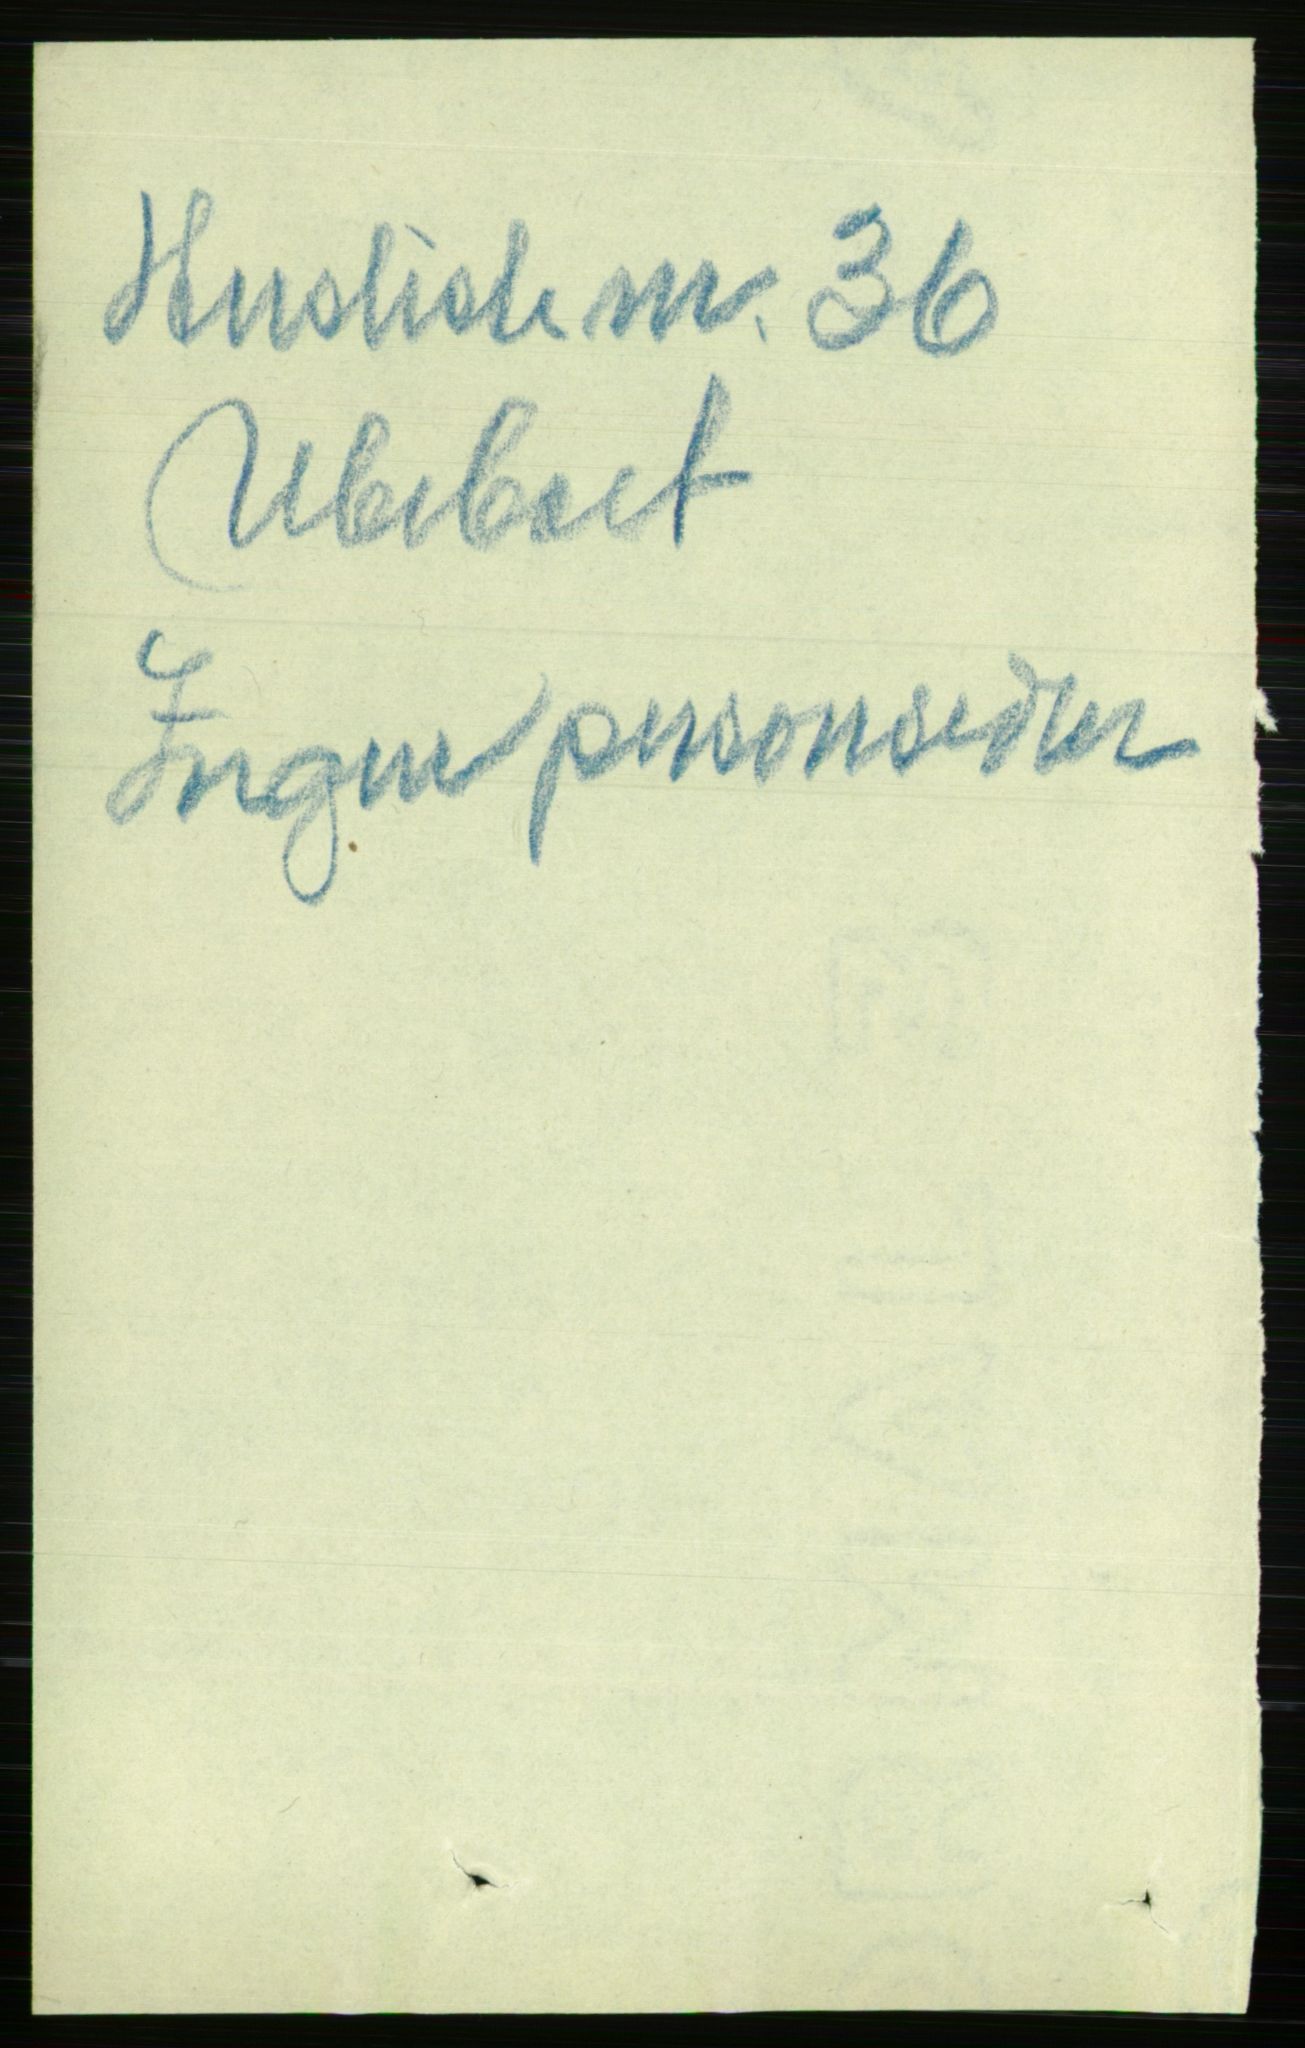 Husliste nr. 36
Ubeboet
Ingen personsedler